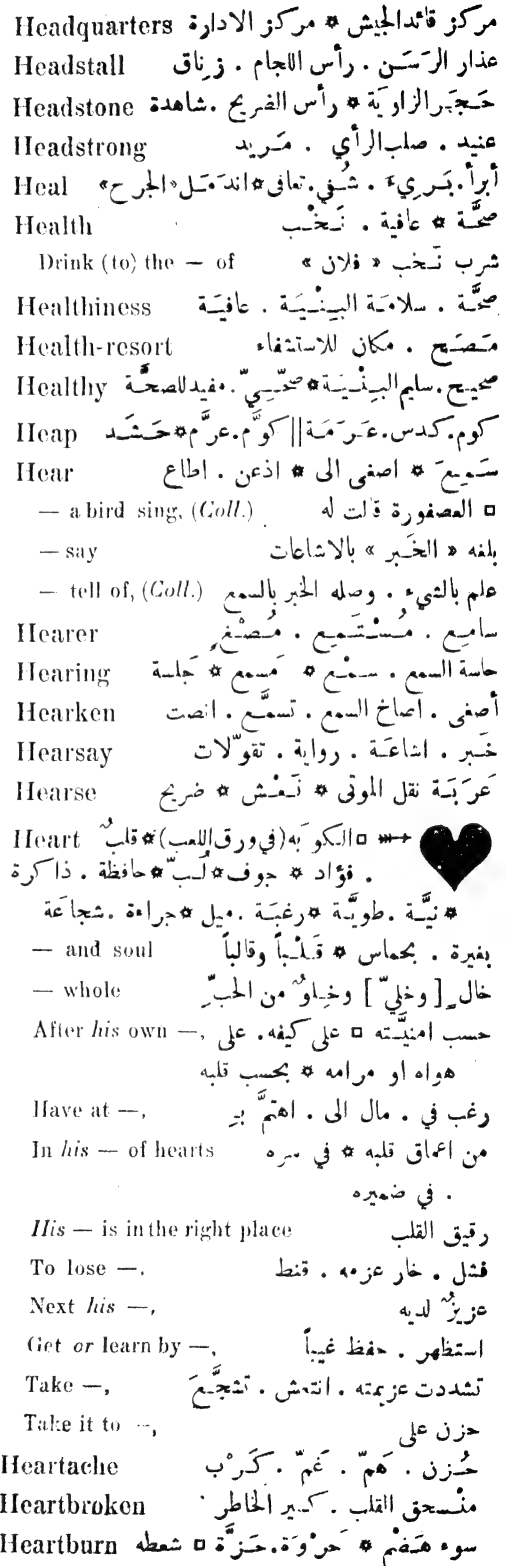 Headquarters مركز قائد الجيش ☼ مركز الادارة
Headstall عذار الرَسَن . رأس اللجام . زِناق
Headstone حَجَر الزاوية ☼ رأس الضريح . شاهدة
Headstrong عنيد . صلب الرأي . مَريد
Heal أبرأ . بَرِيءَ . شُفي . تعافى ☼ اندَمَل «الجرح»
Health صحَّة ☼ عافية . نَخْب
Drink (to) the — of شرب نَخب « فلان »
Healthiness صحَّة . سلامَة البِنْيَة . عافيَة
Health-resort مَصَح . مكان للاستشفاء
Healthy صحيح . سليم البِنْيَة ☼ صحّيّ . مفيد للصحَّة
Heap كوم . كدس . عَرَمَة || كوَّم . عرَّم ☼ حَشَد
Hear سَمِعَ ☼ اصغى الى ☼ اذعن . اطاع
— a bird sing, (Coll.) ◘ العصفورة قالت له
— say بلغه « الخَبر » بالاشاعات
— tell of, (Coll.) علم بالشيء . وصله الخبر بالسمع
Hearer سامِع . مُسْتَمِع . مُصْغٍ
Hearing حاسة السمع . سَمْع ☼ مَسمع ☼ جَلسة
Hearken أصغى . اصاخ السمع . تسمَّع . انصت
Hearsay خَبر . اشاعَة . رواية . تقوّلات
Hearse عَرَبَة نقل الموتى ☼ نَعْش ☼ ضريح
Heart ◘ الكوبَه (في ورق اللعب) ☼ قلبٌ
. فؤاد ☼ جوف ☼ لُبّ ☼ حافظة . ذاكرة
☼ نيَّة . طويَّة ☼ رغبَة . ميل ☼ جراءة . شجاعَة
— and soul بغيرة . بحماس ☼ قَلْباً وقالباً
— whole خالٍ [ وخليّ ] وخِلوٌ من الحبِّ
After his own —, حسب امنيَّته ◘ على كيفه . على
هواه او مرامه ☼ بحسب قلبه
Have at —, رغب في . مال الى . اهتمَّ بـِ
In his — of hearts من اعماق قلبه ☼ في سره
. في ضميره
His — is in the right place رقيق القلب
To lose —. فشل . خار عزمه . قنط
Next his —, عزيزٌ لديه
Get or learn by —, استظهر . حفظ غيباً
Take —, تشددت عزيمته . انتعش . تشجَّعَ
Take it to —, حزن على
Heartache حُزن . هَمّ . غَمّ . كَرْب
Heartbroken منْسحق القلب . كسير الخاطر
Heartburn سوء هَضْم ☼ حَرْوَة . حَزَّة ◘ شعطه